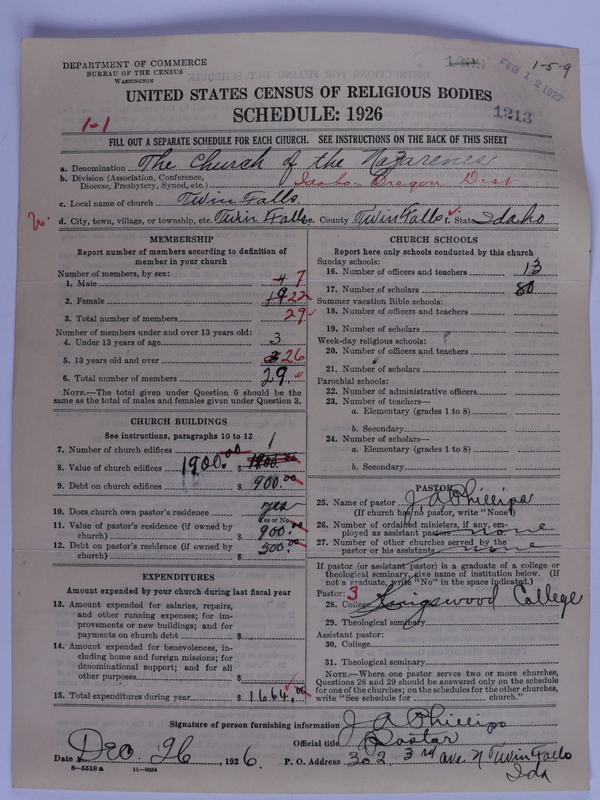 DEPARTMENT OF COMMERCE
BUREAU OF THE CENSUS
WASHINGTON
FEB 12 1927
1-5-9
UNITED STATES CENSUS OF RELIGIOUS BODIES
SCHEDULE: 1926
1213
1-1
FILL OUT A SEPARATE SCHEDULE FOR EACH CHURCH. SEE INSTRUCTIONS ON THE BACK OF THIS SHEET
a. Denomination The Church of the Nazarenes
b. Division (Association, Conference, Diocese, Presbytery, Synod, etc.) Idaho-Oregon Dist
c. Local name of church Twin Falls
d. City, town, village, or township, etc. Twin Falls e. County Twin Falls f. State Idaho
MEMBERSHIP
Report number of members according to definition of
member in your church
Number of members, by sex:
1. Male 7
2. Female 22
3. Total number of members 29
Number of members under and over 13 years old:
4. Under 13 years of age 3
5. 13 years old and over 26
6. Total number of members 29
NOTE.—The total given under Question 6 should be the
same as the total of males and females given under Question 3.
CHURCH BUILDINGS
See instructions, paragraphs 10 to 12
7. Number of church edifices 1
8. Value of church edifices 1900.00 $1900.00
9. Debt on church edifices $900.00
10. Does church own pastor's residence yes
Yes or No
11. Value of pastor's residence (if owned by
church) $900.00
12. Debt on pastor's residence (if owned by
church) $500.00
EXPENDITURES
Amount expended by your church during last fiscal year
13. Amount expended for salaries, repairs,
and other running expenses; for im-
provements or new buildings; and for
payments on church debt $
14. Amount expended for benevolences, in-
cluding home and foreign missions; for
denominational support; and for all
other purposes $
15. Total expenditures during year $1664.00
CHURCH SCHOOLS
Report here only schools conducted by this church
Sunday schools:
16. Number of officers and teachers 13
17. Number of scholars 80
Summer vacation Bible schools:
18. Number of officers and teachers
19. Number of scholars
Week-day religious schools:
20. Number of officers and teachers
21. Number of scholars
Parochial schools:
22. Number of administrative officers
23. Number of teachers—
a. Elementary (grades 1 to 8)
b. Secondary
24. Number of scholars—
a. Elementary (grades 1 to 8)
b. Secondary
PASTOR
25. Name of pastor J. A Phillips
(If church has no pastor, write "None")
26. Number of ordained ministers, if any, em-
ployed as assistant pastors none
27. Number of other churches served by the
pastor or his assistants none
If pastor (or assistant pastor) is a graduate of a college or
theological seminary, give name of institution below. (If
not a graduate, write "No" in the space indicated.)
Pastor: 3
28. College Kingswood College
29. Theological seminary
Assistant pastor:
30. College
31. Theological seminary
NOTE.—Where one pastor serves two or more churches,
Questions 28 and 29 should be answered only on the schedule
for one of the churches; on the schedules for the other churches,
write "See schedule for church."
Signature of person furnishing information J A Phillips
Official title Pastor
Date Dec 26, 1926. P. O. Address 302 3rd ave N Twin Falls
Ida
8-5518a 11-9054